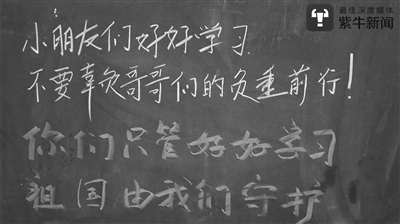 最佳深度媒体
紫牛新闻
小朋友们好好学习
不要辜负哥哥们的负重前行!
你们只管好好学习
祖国由我们守护